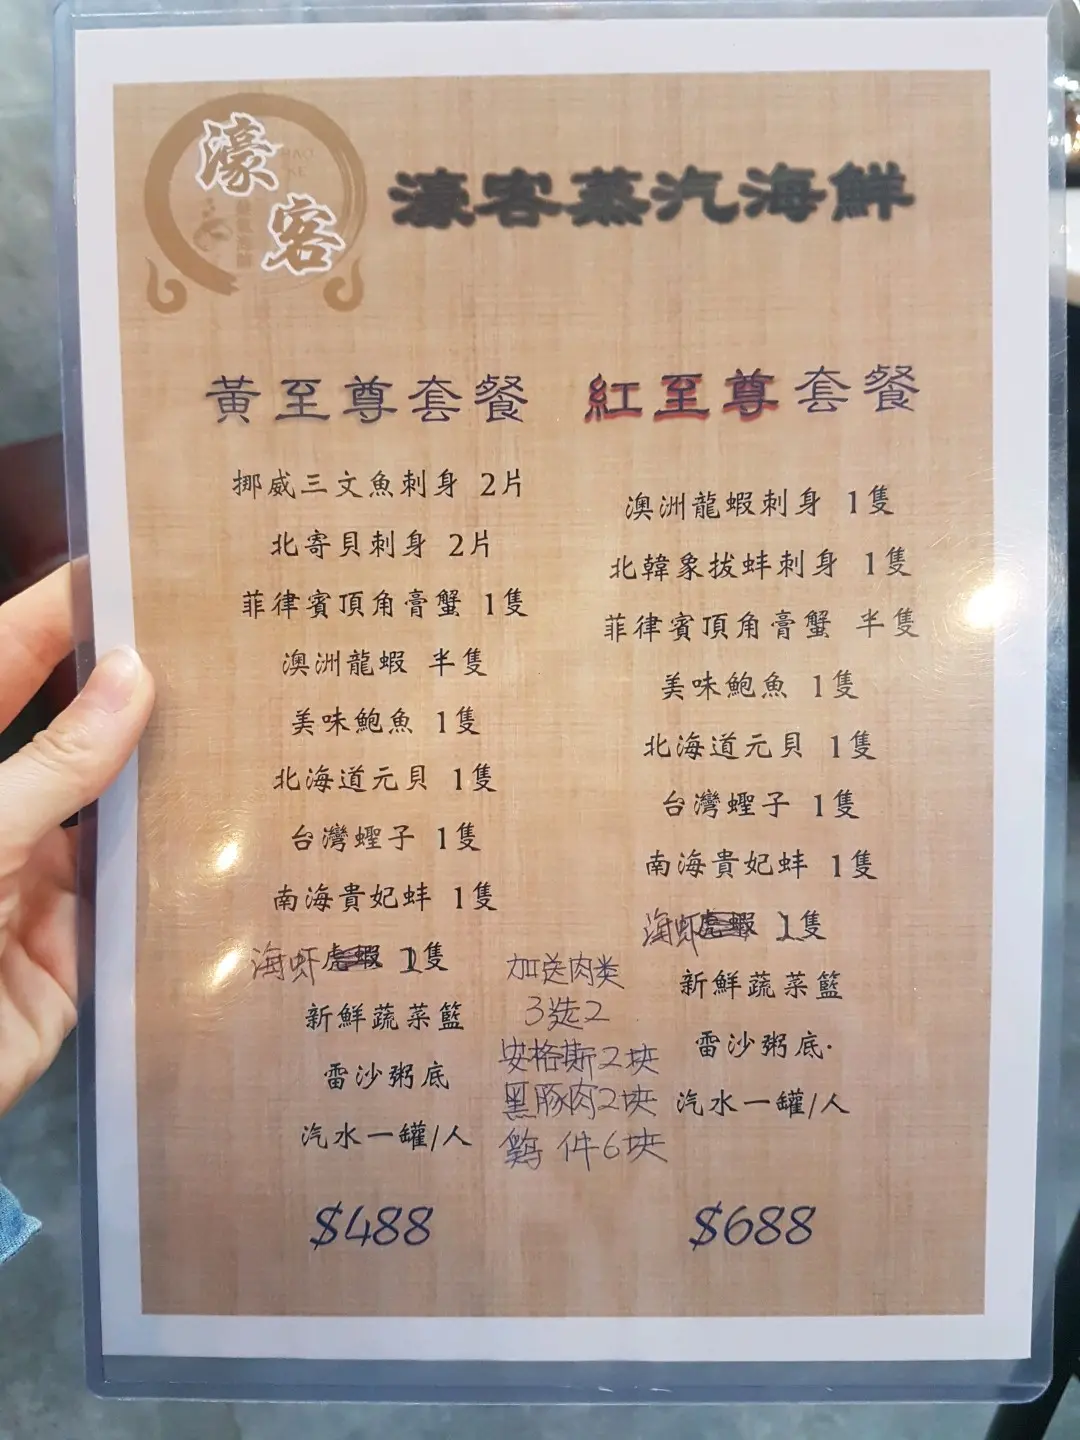 濠客
濠客蒸汽海鮮
黃至尊套餐
挪威三文魚刺身 2片
北寄貝刺身 2片
菲律賓頂角膏蟹 1隻
澳洲龍蝦 半隻
美味鮑魚 1隻
北海道元貝 1隻
台灣蟶子 1隻
南海貴妃蚌 1隻
海虾 1隻
新鮮蔬菜籃
雷沙粥底
汽水一罐/人
$488
加送肉类
3选2
安格斯2块
黑豚肉2块
鷄件6块
紅至尊套餐
澳洲龍蝦刺身 1隻
北韓象拔蚌刺身 1隻
菲律賓頂角膏蟹 半隻
美味鮑魚 1隻
北海道元貝 1隻
台灣蟶子 1隻
南海貴妃蚌 1隻
海虾 1隻
新鮮蔬菜籃
雷沙粥底
汽水一罐/人
$688